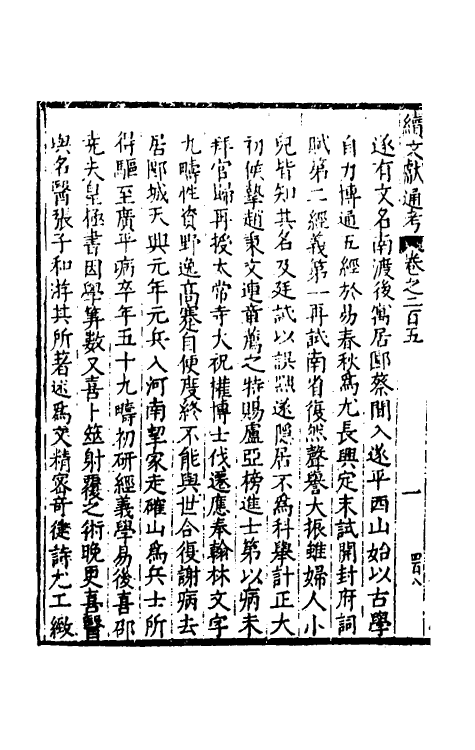 續文獻通考 卷之二百五 一
遂有文名南渡後寓居郾蔡間入遂平西山始以古學
自力博通五經於易春秋爲尤長興定末試開封府詞
賦第二經義第一再試南省復然聲譽大振雖婦人小
兒皆知其名及廷試以誤黜遂隱居不爲科舉計正大
初侯摯趙秉文連章薦之特賜盧亞榜進士第以病未
拜官歸再授太常寺大祝權博士伐還應奉翰林文字
九疇性資野逸高蹇自便度終不能與世合復謝病去
居郾城天興元年元兵入河南挈家走確山爲兵士所
得驅至廣平病卒年五十九疇初研經義學易後喜邵
堯夫皇極書因學筭數又喜卜筮射覆之術晚更喜醫
與名醫張子和游其所著述爲文精密奇健詩尤工緻